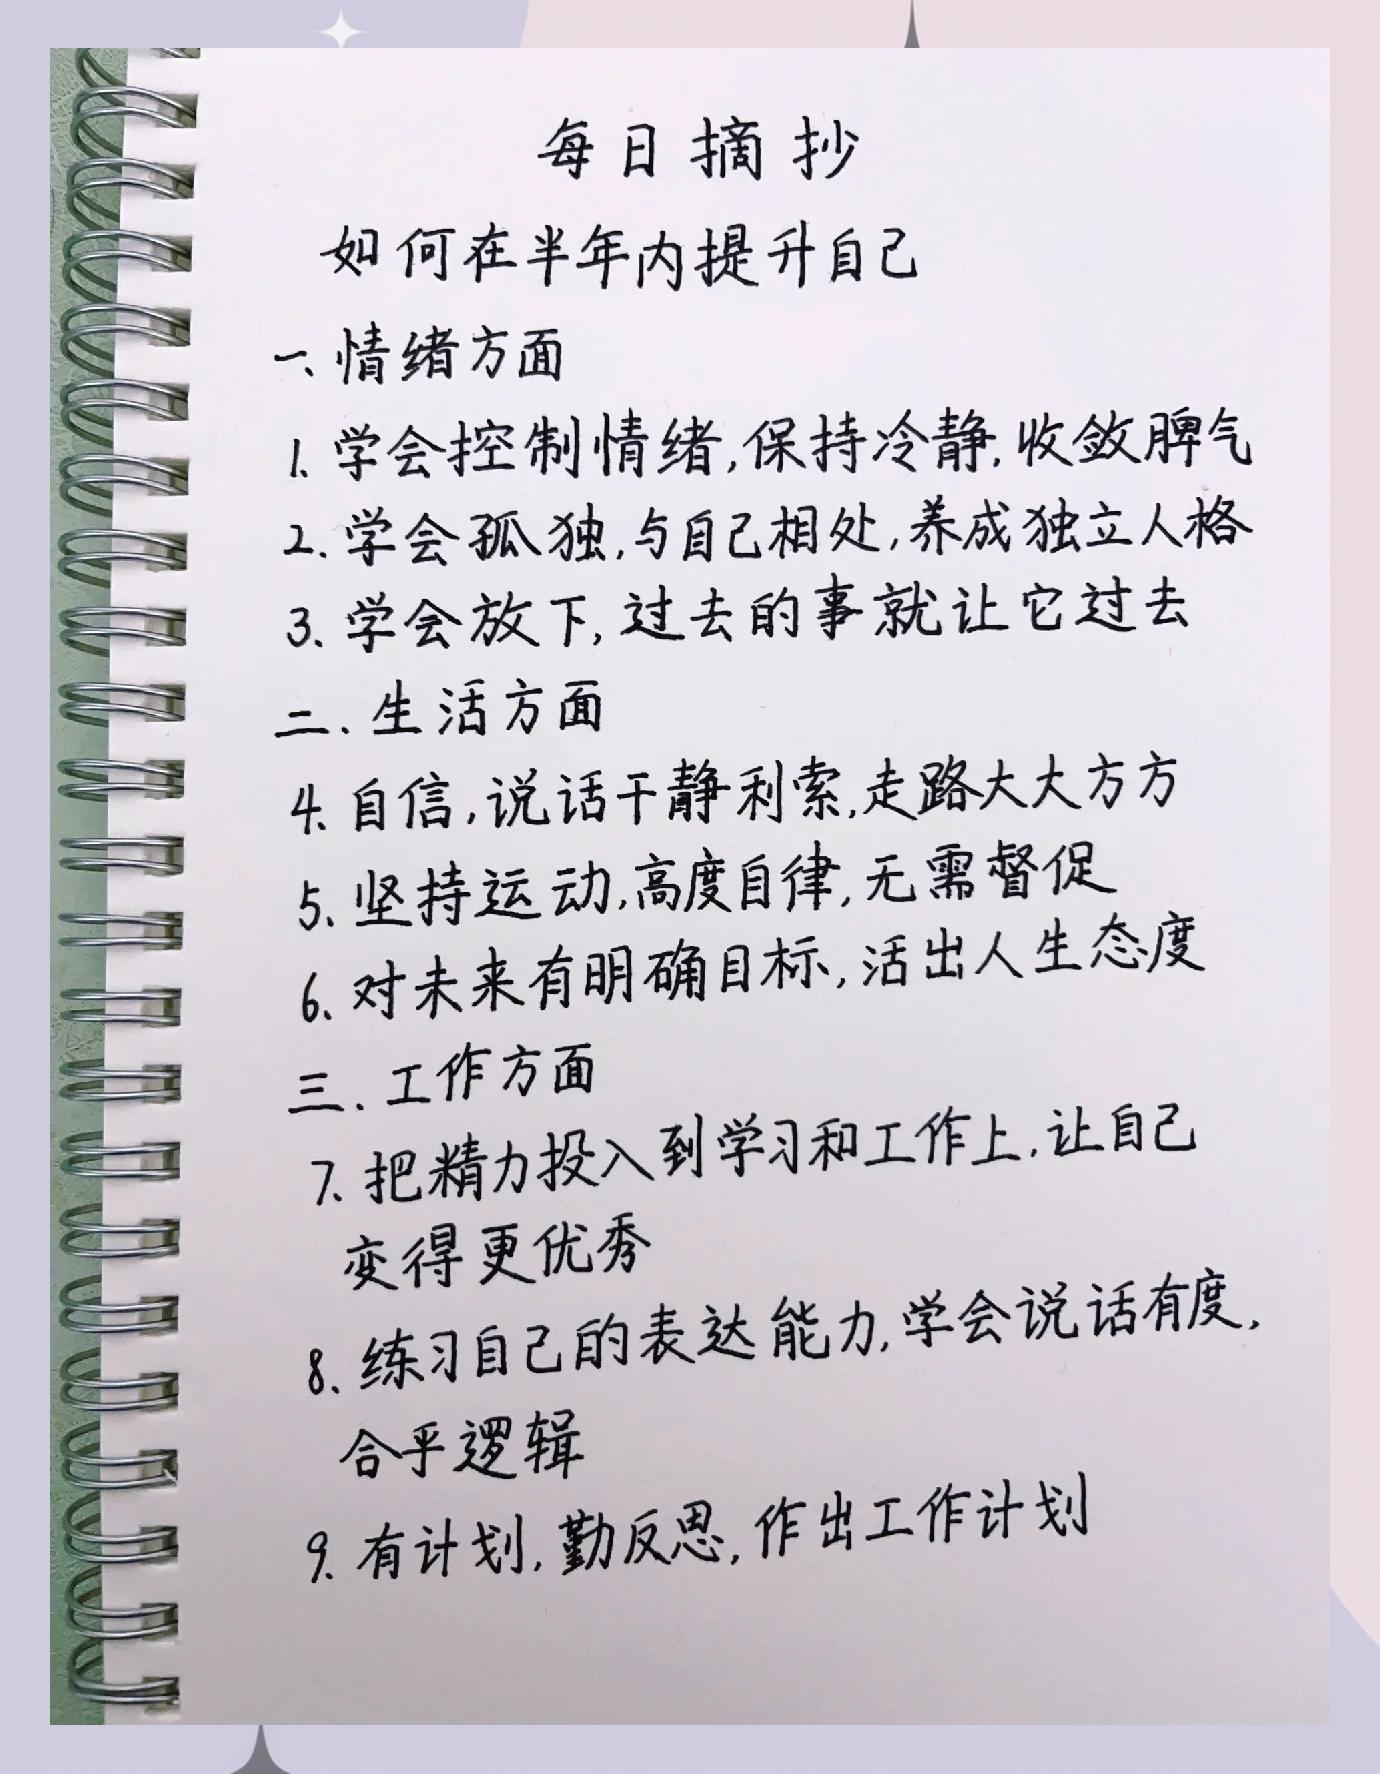 每日摘抄
如何在半年内提升自己
一、情绪方面
1. 学会控制情绪,保持冷静,收敛脾气
2. 学会孤独,与自己相处,养成独立人格
3. 学会放下,过去的事就让它过去
二、生活方面
4. 自信,说话干静利索,走路大大方方
5. 坚持运动,高度自律,无需督促
6. 对未来有明确目标,活出人生态度
三、工作方面
7. 把精力投入到学习和工作上,让自己
变得更优秀
8. 练习自己的表达能力,学会说话有度,
合乎逻辑
9. 有计划,勤反思,作出工作计划